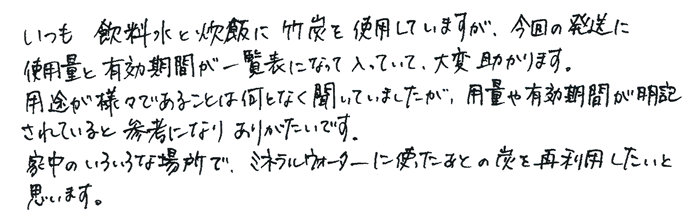 いつも 飲料水と炊飯に 竹炭を使用していますが、今回の発送に
使用量と有効期間が一覧表になって入っていて、大変助かります。
用途が様々であることは何となく聞いていましたが、用量や有効期間が明記
されていると参考になりありがたいです。
家中のいろいろな場所で、ミネラルウォーターに使ったあとの炭を再利用したいと
思います。